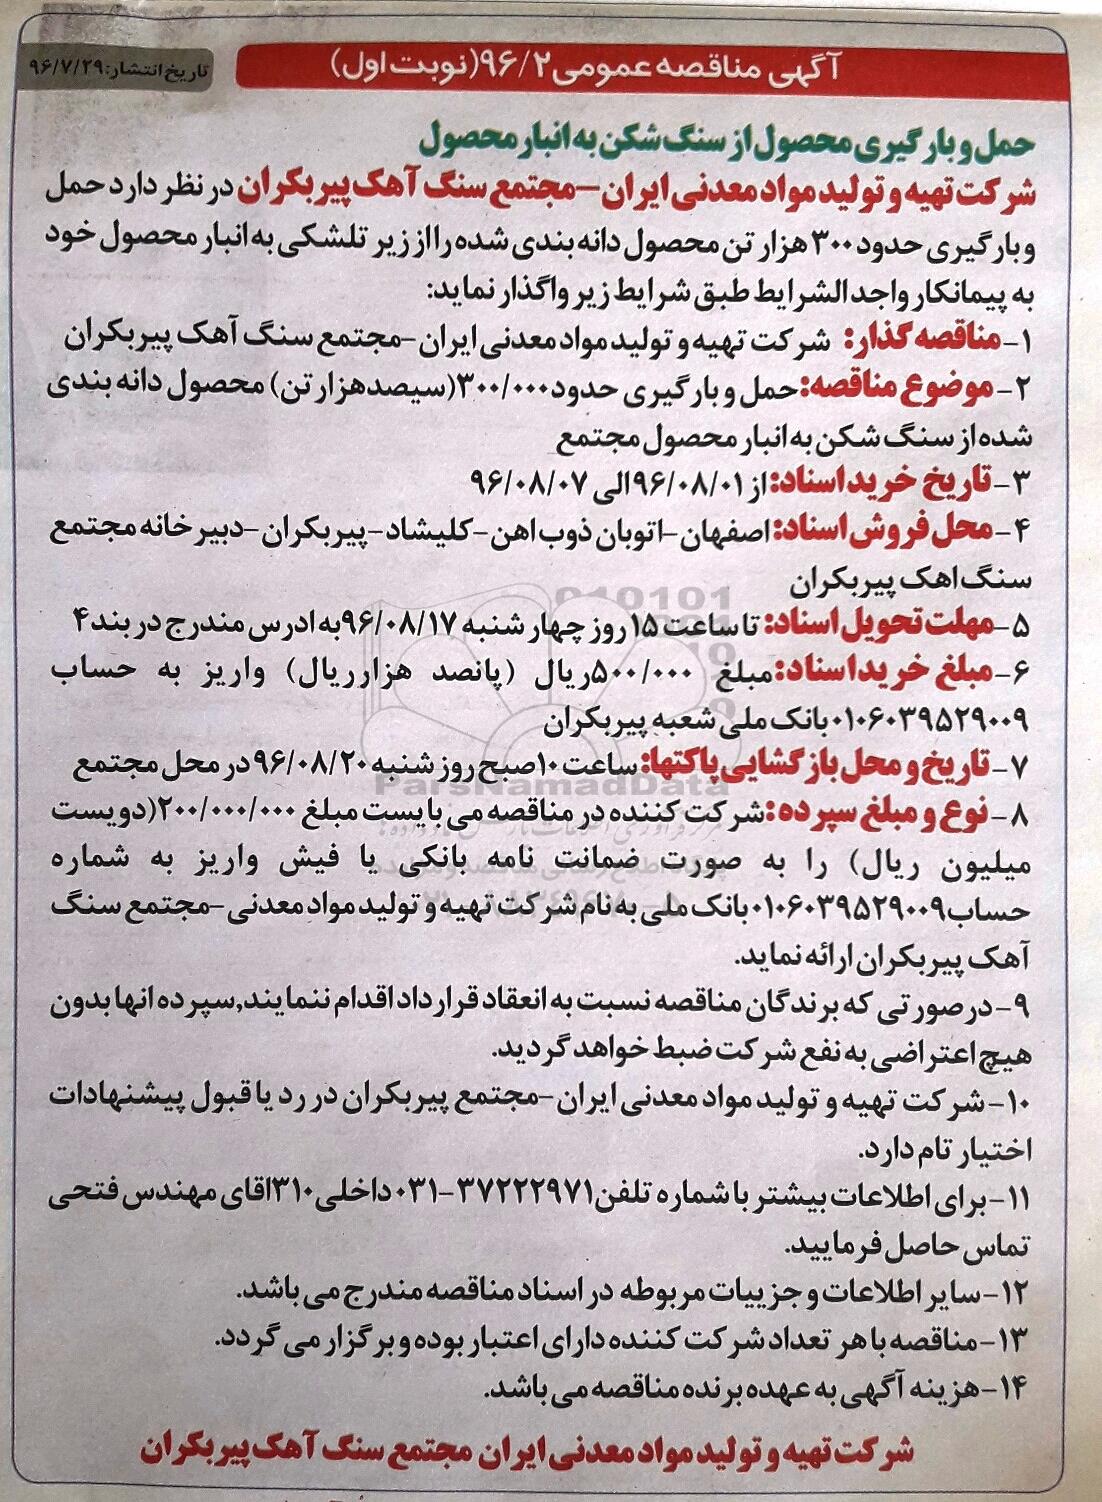 آگهی مناقصه عمومی ۹۶/۲(نوبت اول)
تاریخ انتشار: ۹۶/۷/۲۹
حمل و بارگیری محصول از سنگ شکن به انبار محصول
شرکت تهیه و تولید مواد معدنی ایران – مجتمع سنگ آهک پیربکران در نظر دارد حمل
و بارگیری حدود ۳۰۰ هزار تن محصول دانه بندی شده را از زیر تلشکی به انبار محصول خود
به پیمانکار واجد الشرایط طبق شرایط زیر واگذار نماید:
۱- مناقصه گذار: شرکت تهیه و تولید مواد معدنی ایران - مجتمع سنگ آهک پیربکران
۲- موضوع مناقصه: حمل و بارگیری حدود ۳۰۰/۰۰۰(سیصد هزار تن) محصول دانه بندی
شده از سنگ شکن به انبار محصول مجتمع
۳- تاریخ خرید اسناد: از ۹۶/۰۸/۰۱ الی ۹۶/۰۸/۰۷
۴- محل فروش اسناد: اصفهان - اتوبان ذوب اهن - کلیشاد - پیربکران - دبیرخانه مجتمع
سنگ اهک پیربکران
۵- مهلت تحویل اسناد: تا ساعت ۱۵ روز چهار شنبه ۹۶/۰۸/۱۷ به ادرس مندرج در بند ۴
۶- مبلغ خرید اسناد: مبلغ ۵۰۰/۰۰۰ ریال (پانصد هزار ریال) واریز به حساب
۰۱۰۶۰۳۹۵۲۹۰۰۹ بانک ملی شعبه پیربکران
۷- تاریخ و محل بازگشایی پاکتها: ساعت ۱۰ صبح روز شنبه ۹۶/۰۸/۲۰ در محل مجتمع
۸- نوع و مبلغ سپرده: شرکت کننده در مناقصه می بایست مبلغ ۲۰۰/۰۰۰/۰۰۰(دویست
میلیون ریال) را به صورت ضمانت نامه بانکی یا فیش واریز به شماره
حساب ۰۱۰۶۰۳۹۵۲۹۰۰۹ بانک ملی به نام شرکت تهیه و تولید مواد معدنی - مجتمع سنگ
آهک پیربکران ارائه نماید.
۹- در صورتی که برندگان مناقصه نسبت به انعقاد قرارداد اقدام ننمایند, سپرده انها بدون
هیچ اعتراضی به نفع شرکت ضبط خواهد گردید.
۱۰- شرکت تهیه و تولید مواد معدنی ایران - مجتمع پیربکران در رد یا قبول پیشنهادات
اختیار تام دارد.
۱۱- برای اطلاعات بیشتر با شماره تلفن ۳۷۲۲۲۹۷۱-۰۳۱ داخلی ۳۱۰ اقای مهندس فتحی
تماس حاصل فرمایید.
۱۲- سایر اطلاعات و جزییات مربوطه در اسناد مناقصه مندرج می باشد.
۱۳- مناقصه با هر تعداد شرکت کننده دارای اعتبار بوده و برگزار می گردد.
۱۴- هزینه آگهی به عهده برنده مناقصه می باشد.
شرکت تهیه و تولید مواد معدنی ایران مجتمع سنگ آهک پیربکران
ParsNamadData